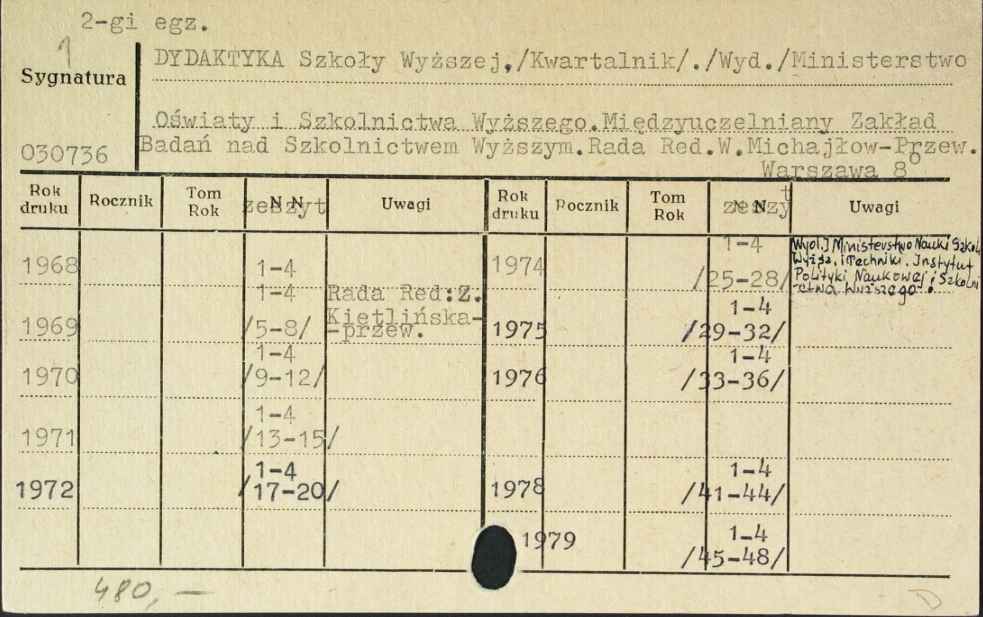 2-gi egz.
1
Sygnatura
DYDAKTYKA Szkoły Wyższej,/Kwartalnik/./Wyd./Ministerstwo
Oświaty i Szkolnictwa Wyższego.Międzyuczelniany Zakład
030736
Badań nad Szkolnictwem Wyższym.Rada Red.W.Michajłow-Przew.
Warszawa 8°
Rok druku Rocznik Tom Rok N N zeszyt Uwagi Rok druku Rocznik Tom Rok N N zeszyt Uwagi
1968 1-4
1974 1-4 /25-28/ Wyd.] Ministerstwo Nauki Szkol.
Wyższ. i Techniki. Instytut
Polityki Naukowej i Szkolni
ctwa Wyższego.
1969 1-4 /5-8/ Rada Red:Z.
Kietlińska-
-przew.
1975 1-4 /29-32/
1970 1-4 /9-12/
1976 1-4 /33-36/
1971 1-4 /13-15/
1972 1-4 /17-20/
1978 1-4 /41-44/
1979 1-4 /45-48/
480,—
D